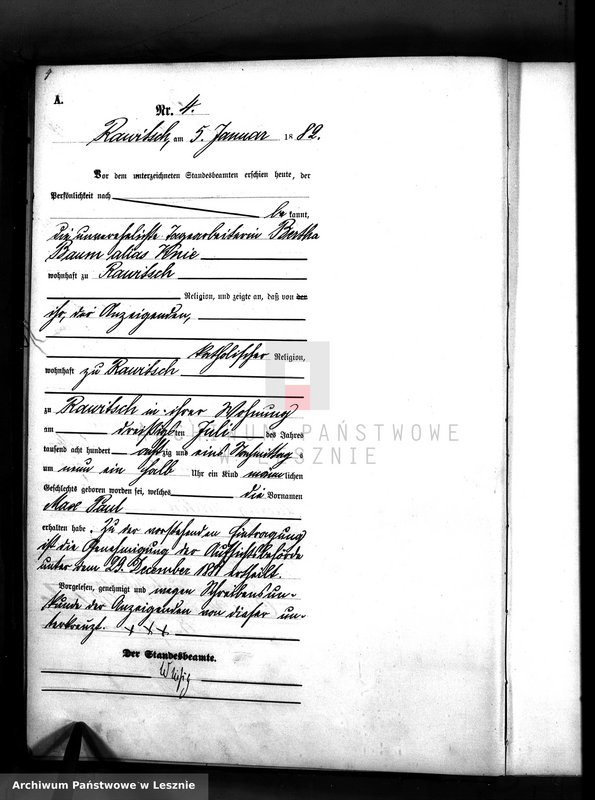 A.
Nr. 4.
Rawitsch, am 5. Januar 1882.
Vor dem unterzeichneten Standesbeamten erschien heute, der
Persönlichkeit nach
be kannt,
die unverehelichte Tagearbeiterin Bertha
Baum alias Knie
wohnhaft zu Rawitsch
Religion, und zeigte an, daß von der
ihr, der Anzeigenden,
katholischer Religion,
wohnhaft zu Rawitsch
zu Rawitsch in ihrer Wohnung
am dreißigsten Juli des Jahres
tausend acht hundert achtzig und eins Vormittags
um neun ein halb Uhr ein Kind männlichen
Geschlechts geboren worden sei, welches die Vornamen
Max Paul
erhalten habe. Zu der vorstehenden Eintragung
ist die Genehmigung der Aufsichtsbehörde
unter dem 29. December 1881 ertheilt.
Vorgelesen, genehmigt und wegen Schreibensun-
kunde der Anzeigenden von dieser un-
terkreuzt. + + +
Der Standesbeamte.
ARCHIWUM PAŃSTWOWE
W LESZNIE
Archiwum Państwowe w Lesznie